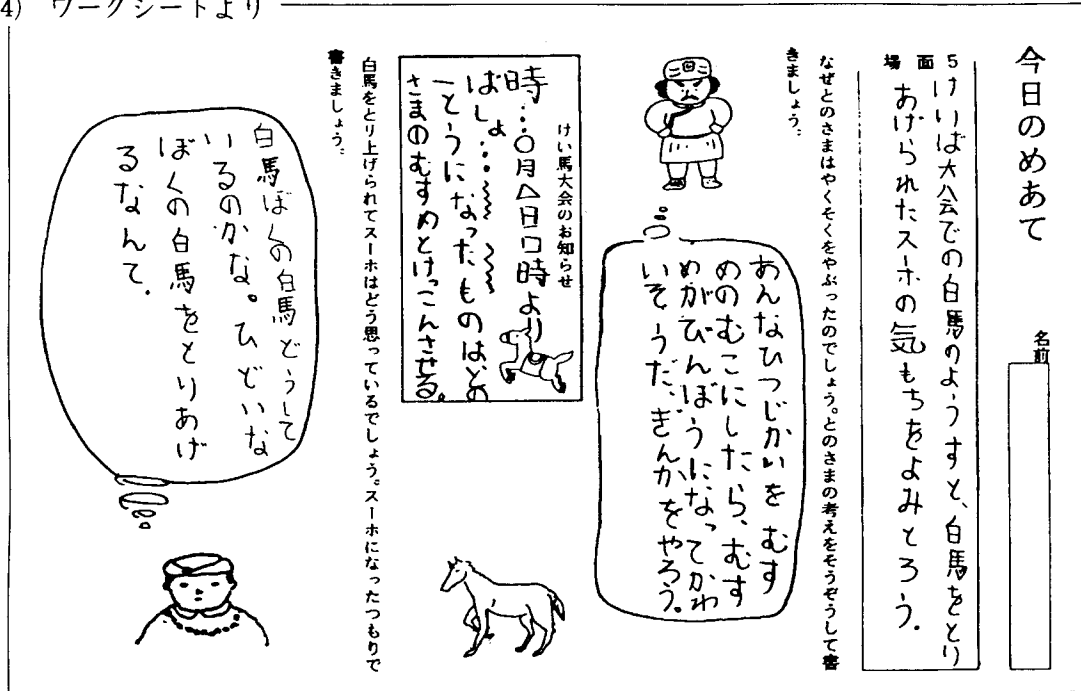 4) ワークシートより
今日のめあて
名前
5場面
けいば大会での白馬のようすと、白馬をとり
あげられたスーホの気もちをよみとろう。
なぜとのさまはやくそくをやぶったのでしょう。とのさまの考えをそうぞうして書
きましょう。
あんなひつじかいをむす
めのむこにしたら、むす
めがびんぼうになってかわ
いそうだ、ぎんかをやろう。
けい馬大会のお知らせ
時…○月△日口時より
ばしょ…
一とうになったものはとの
さまのむすめとけっこんさせる。
白馬をとり上げられてスーホはどう思っているでしょう。スーホになったつもりで
書きましょう。
白馬ぼくの白馬どうして
いるのかな。ひどいな
ぼくの白馬をとりあげ
るなんて.